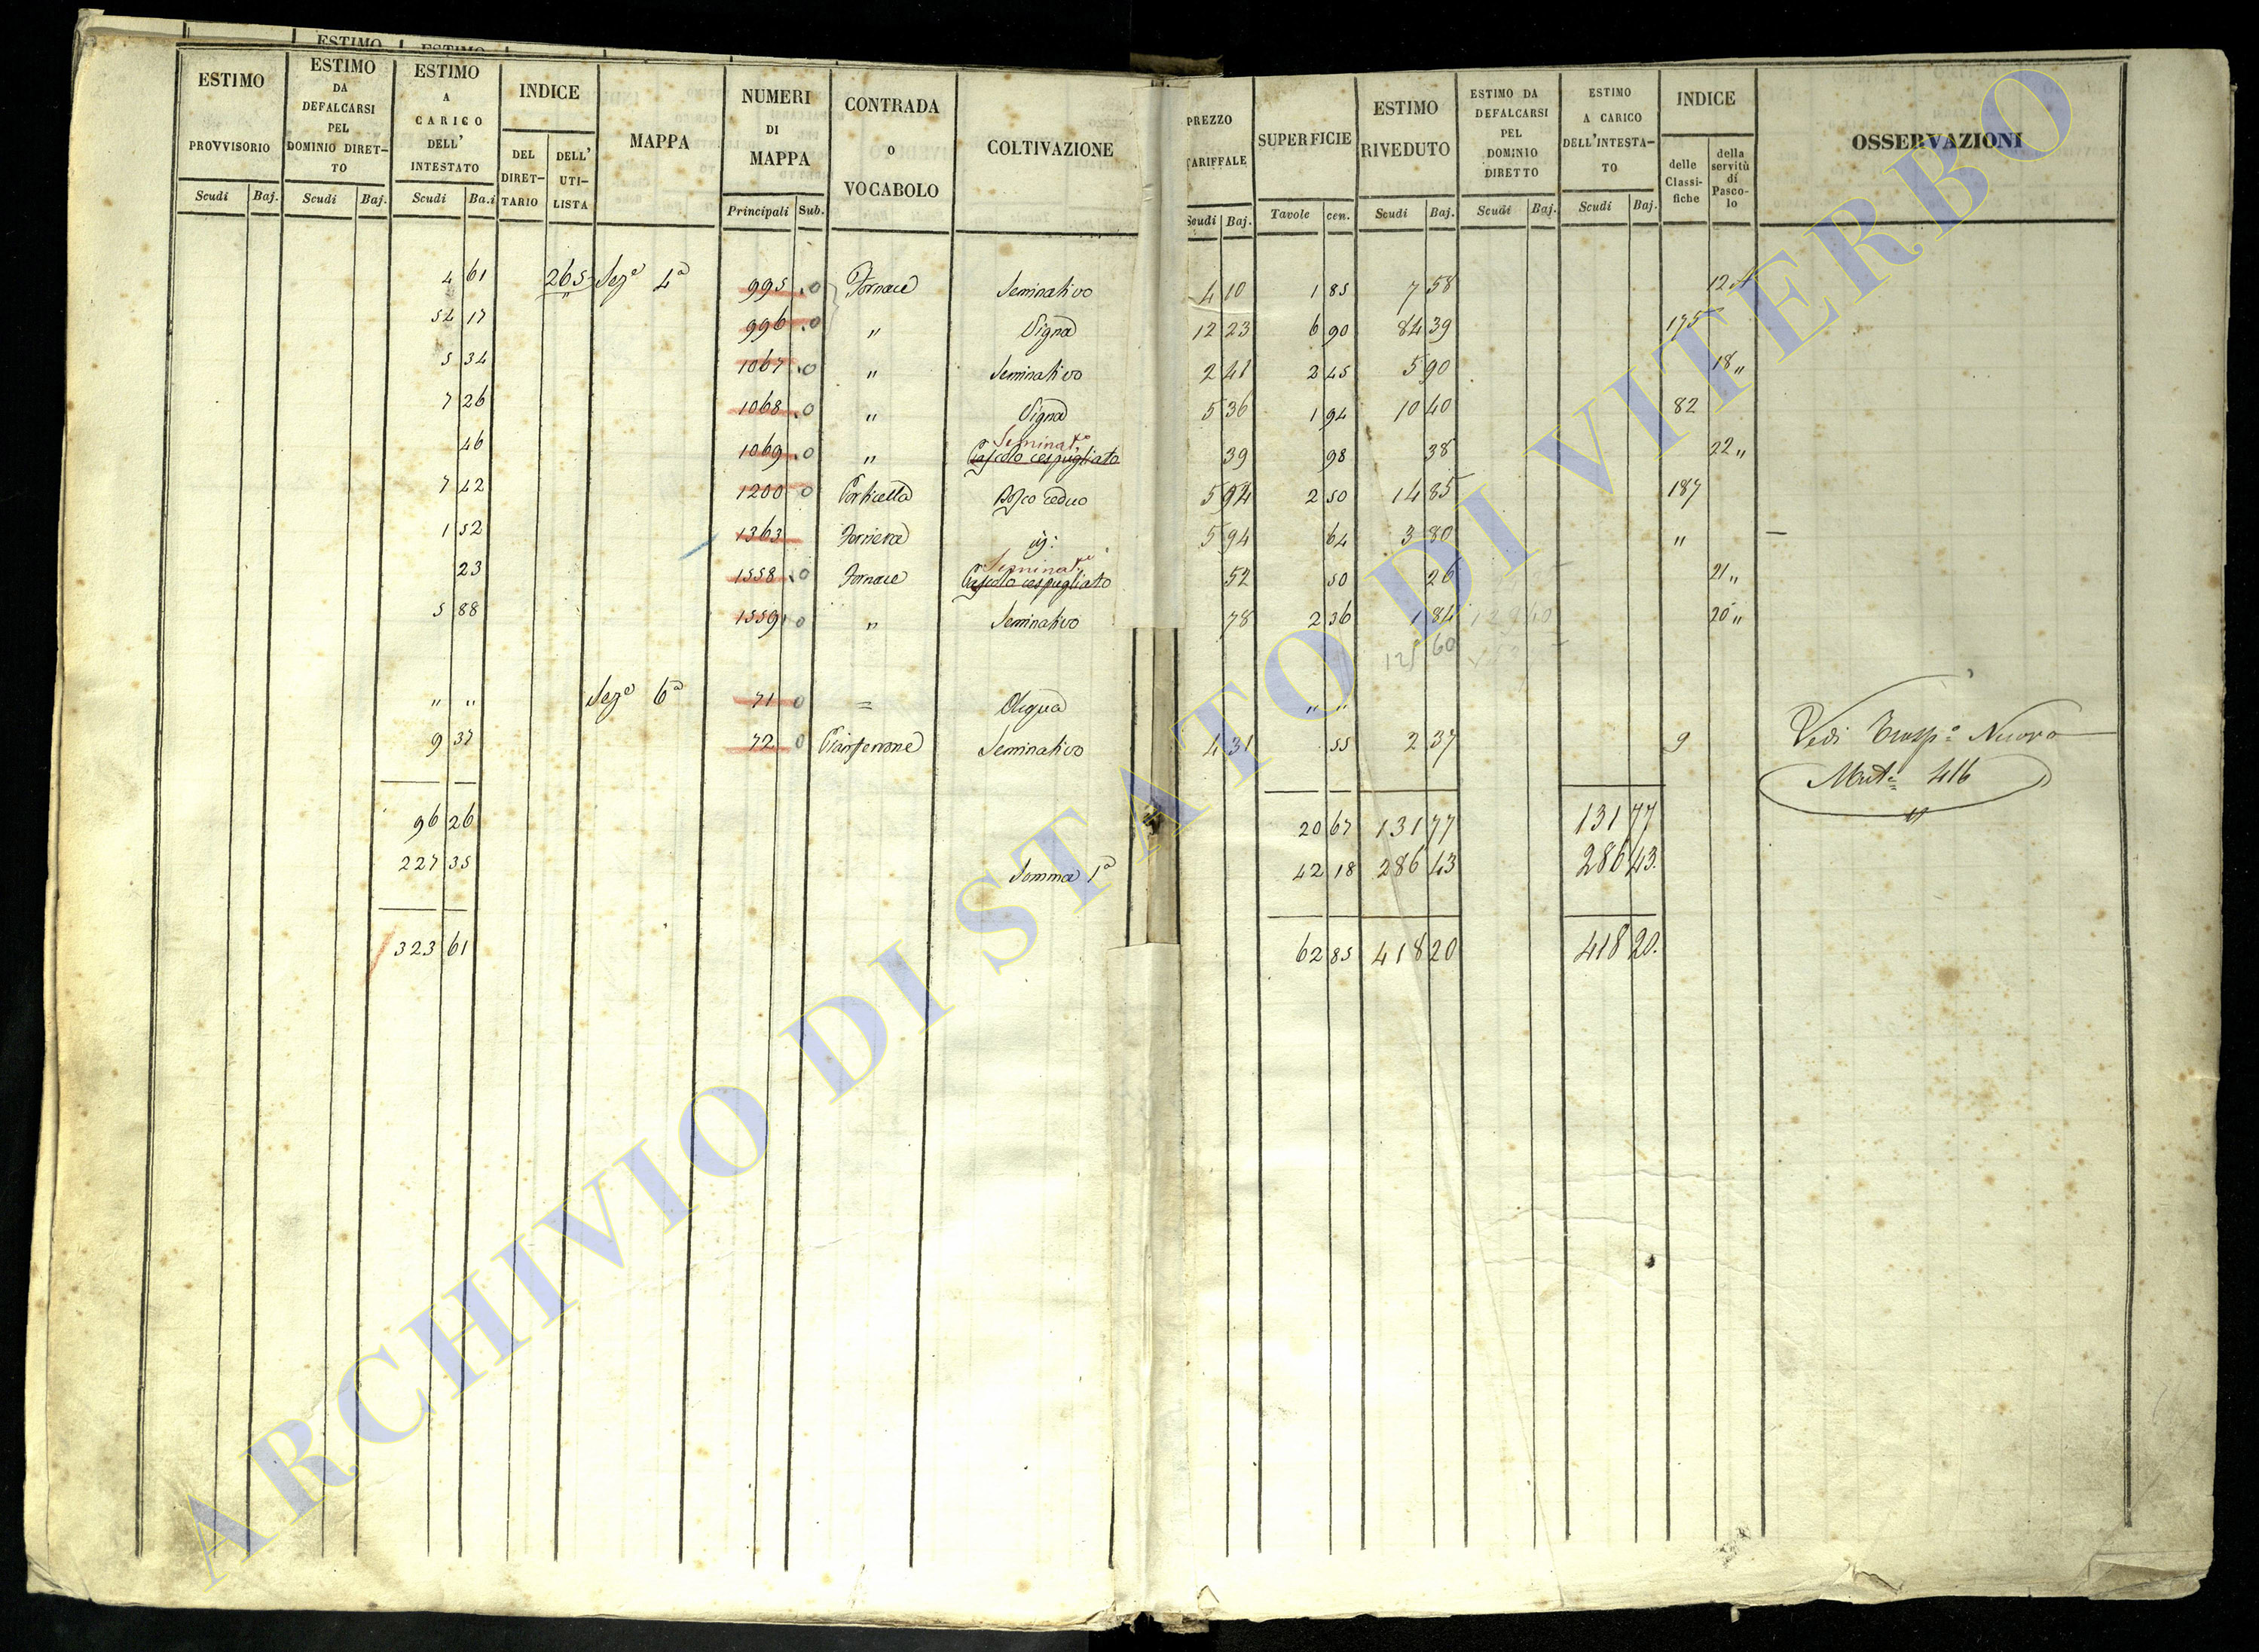 ESTIMO ESTIMO
ESTIMO PROVVISORIO Scudi Baj.
ESTIMO DA DEFALCARSI PEL DOMINIO DIRET-TO Scudi Baj.
ESTIMO A CARICO DELL' INTESTATO Scudi Ba.i
INDICE DEL DIRET-TARIO DELL' UTI-LISTA
MAPPA
NUMERI DI MAPPA Principali Sub.
CONTRADA o VOCABOLO
COLTIVAZIONE
PREZZO TARIFFALE Scudi Baj.
SUPERFICIE Tavole cen.
ESTIMO RIVEDUTO Scudi Baj.
ESTIMO DA DEFALCARSI PEL DOMINIO DIRETTO Scudi Baj.
ESTIMO A CARICO DELL'INTESTA-TO Scudi Baj.
INDICE delle Classi-fiche della servitù di Pasco-lo
OSSERVAZIONI
4 61 265 Sez.e 4a 995 0 Fornace Seminativo 4 10 1 85 7 58 12 A
54 17 996 0 " Vigna 12 23 6 90 84 39 175
5 34 1067 0 " Seminativo 2 41 2 45 5 90 18 "
7 26 1068 0 " Vigna 5 36 1 94 10 40 82
Seminat.o
46 1069 0 " Pascolo cespugliato 39 98 38 22 "
7 42 1200 0 Bosco Ceduo 5 94 2 50 14 85 187
1 52 1363 5 94 64 3 80 " —
Seminat.o
23 1558 0 Fornace Pascolo cespugliato 52 50 26 21 "
5 88 1559 0 " Seminativo 78 2 36 1 84 20 "
60
" " Sez.e 6a 71 0 = " "
9 37 72 0 Seminativo 4 31 55 2 37 9
Vedi Trasp.o Nuovo
Mut.e 416
96 26 20 67 131 77 131 77
227 35 Somma 1a 42 18 286 43 286 43.
323 61 62 85 418 20 418 20.
ARCHIVIO DI STATO DI VITERBO